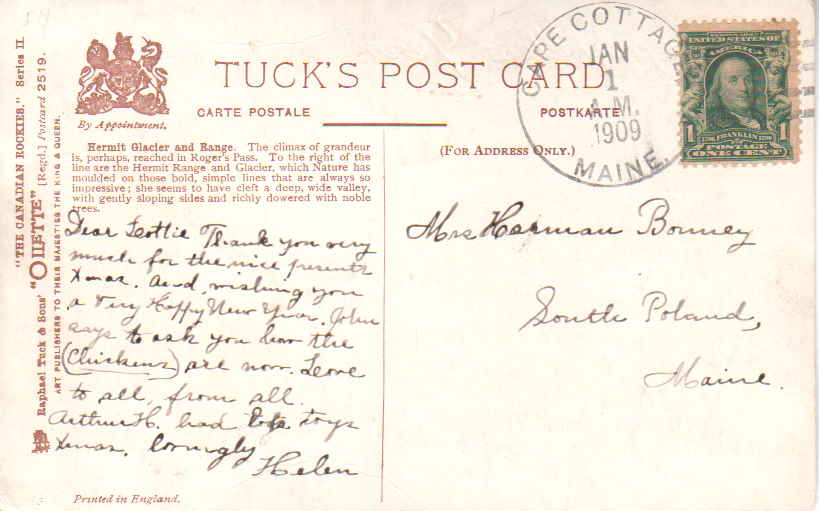 TUCK'S POST CARD
CARTE POSTALE
POSTKARTE
(FOR ADDRESS ONLY.)
By Appointment.
Hermit Glacier and Range. The climax of grandeur
is, perhaps, reached in Roger's Pass. To the right of the
line are the Hermit Range and Glacier, which Nature has
moulded on those bold, simple lines that are always so
impressive; she seems to have cleft a deep, wide valley,
with gently sloping sides and richly dowered with noble
trees.
"THE CANADIAN ROCKIES." Series II.
Raphael Tuck & Sons' "OILETTE" [Regd.] Postcard 2519.
ART PUBLISHERS TO THEIR MAJESTIES THE KING & QUEEN.
Dear Lottie Thank you very
much for the nice presents
Xmas. And, wishing you
a Very Happy New Year. John
says to ask you how the
(Chickens) are now. Love
to all, from all.
Arthur H. had toys
Xmas, lovingly
Helen
Printed in England.
CAPE COTTAGE
JAN
1
A.M.
1909
MAINE.
UNITED STATES OF
AMERICA
1 FRANKLIN 1
POSTAGE
ONE CENT
Mrs Herman Bonney
South Poland,
Maine.